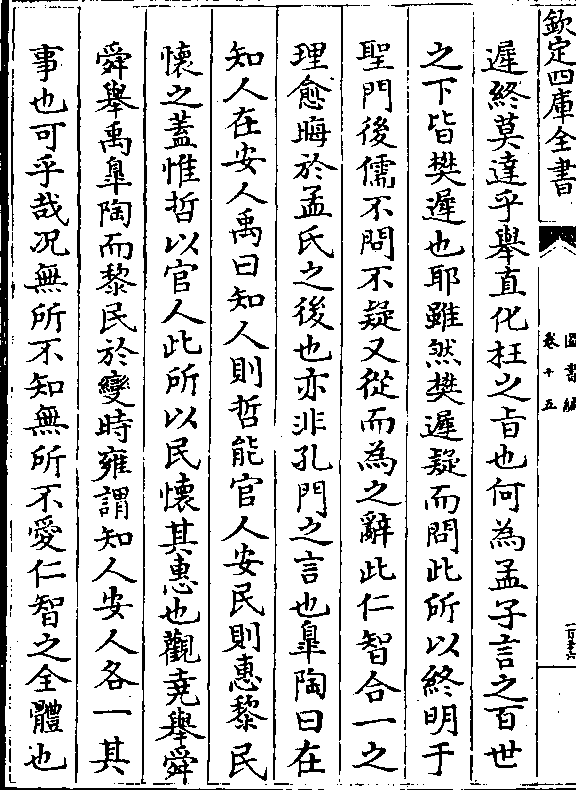 欽定四庫全書
圖書編
卷十五
遲終莫達乎舉直化枉之旨也何為孟子言之百世
之下皆樊遲也耶雖然樊遲疑而問此所以終明于
聖門後儒不問不疑又從而為之辭此仁智合一之
理愈晦於孟氏之後也亦非孔門之言也臯陶曰在
知人在安人禹曰知人則哲能官人安民則惠黎民
懷之蓋惟哲以官人此所以民懷其惠也觀堯舉舜
舜舉禹臯陶而黎民於變時雍謂知人安人各一其
事也可乎哉况無所不知無所不愛仁智之全體也